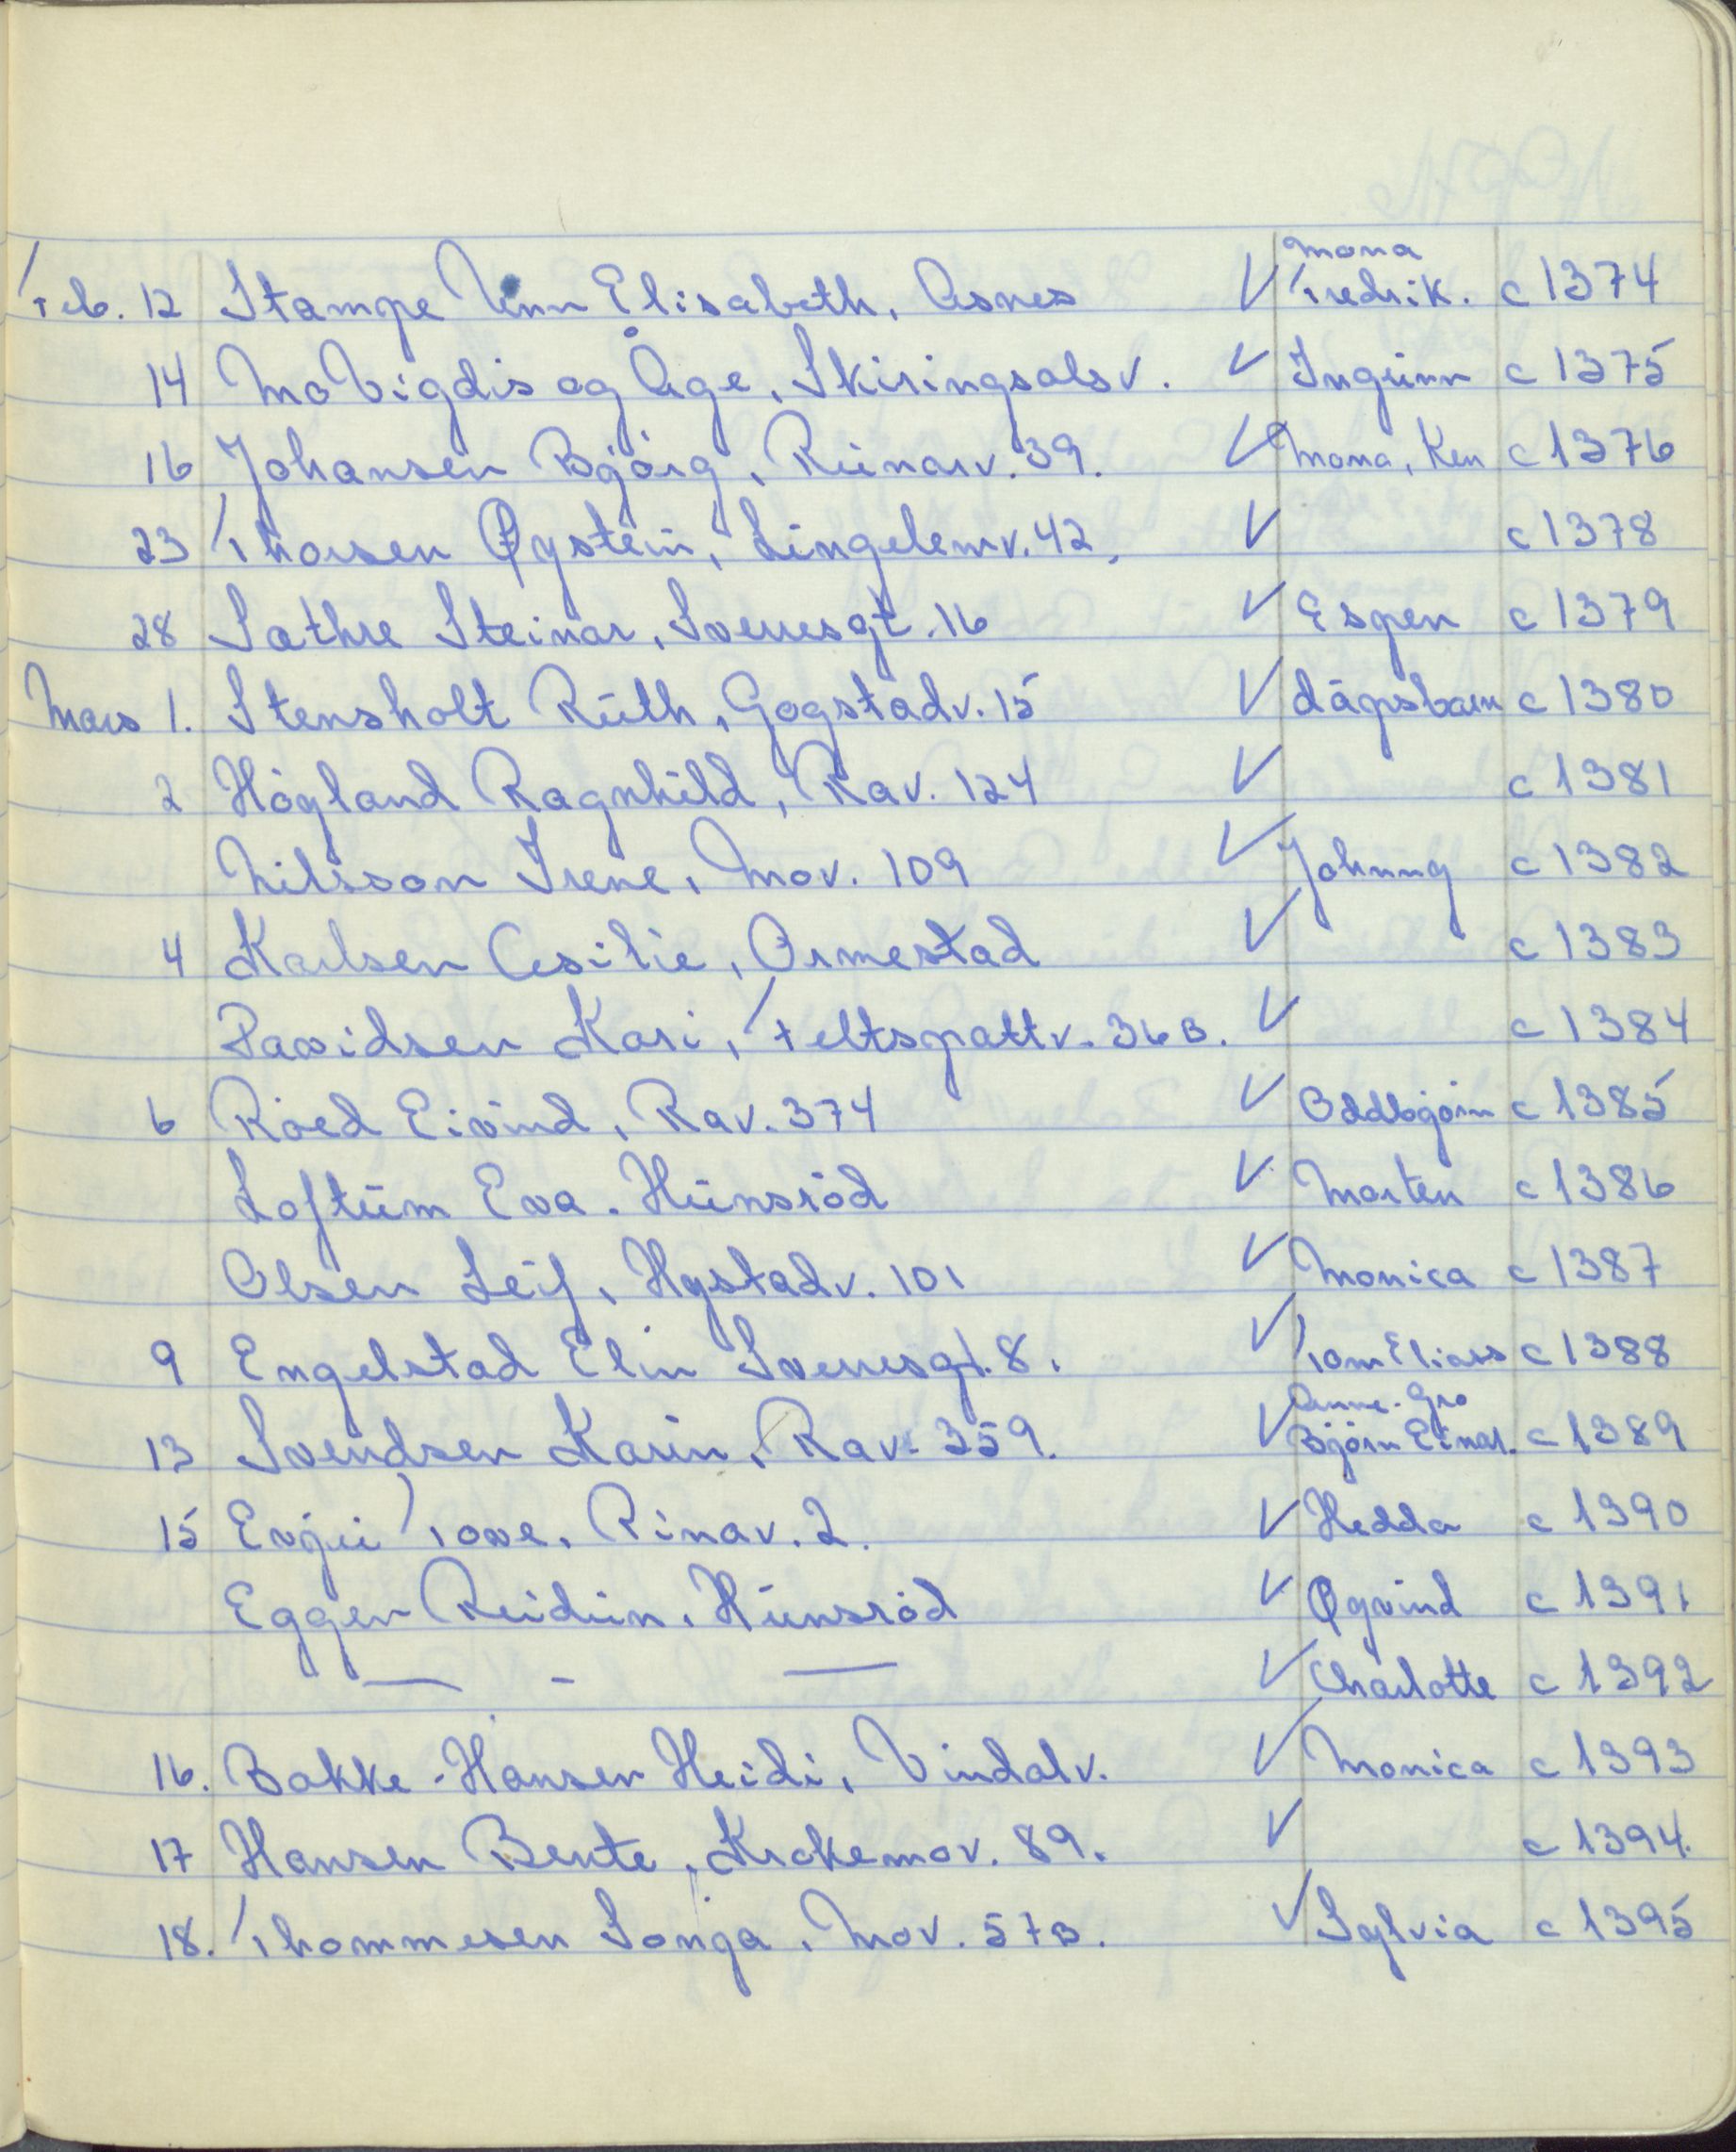 Feb. 12 Stampe Unn Elisabeth, Asnes ✓ Mona Fredrik. c 1374
14 Mo Vigdis og Åge, Skiringsalsv. ✓ Ingunn c 1375
16 Johansen Bjørg, Runarv. 39. ✓ Mona, Ken c 1376
23 Thorsen Øystein, Lingelemv. 42. ✓ c 1378
28 Sæthre Steinar, Sverresgt. 16 ✓ Espen c 1379
Mars 1. Stensholt Ruth, Gogstadv. 15 ✓ dåpsbarn c 1380
2 Høgland Ragnhild, Rav. 124 ✓ c 1381
Nilsson Irene, Mov. 109 ✓ Johnny c 1382
4 Karlsen Cesilie, Ormestad ✓ c 1383
Davidsen Kari, Feltspattv. 36 B. ✓ c 1384
6 Røed Eivind, Rav. 374 ✓ Oddbjørn c 1385
Loftum Eva. Hunsrød ✓ Morten c 1386
Olsen Leif, Nystadv. 101 ✓ Monica c 1387
9 Engelstad Elin Sverresgt. 8. ✓ Tom Elias c 1388
13 Svendsen Karin, Rav. 359. ✓ Anne-Gro Bjørn Einar. c 1389
15 Evju Tove, Rinav. 2. ✓ Hedda c 1390
Eggen Reidun, Hunsrød ✓ Øyvind c 1391
— - — ✓ Charlotte c 1392
16. Bakke-Hansen Heidi, Vindalv. ✓ Monica c 1393
17 Hansen Bente, Krokemov. 89. ✓ c 1394.
18. Thommesen Sonja, Mov. 57 B. ✓ Sylvia c 1395